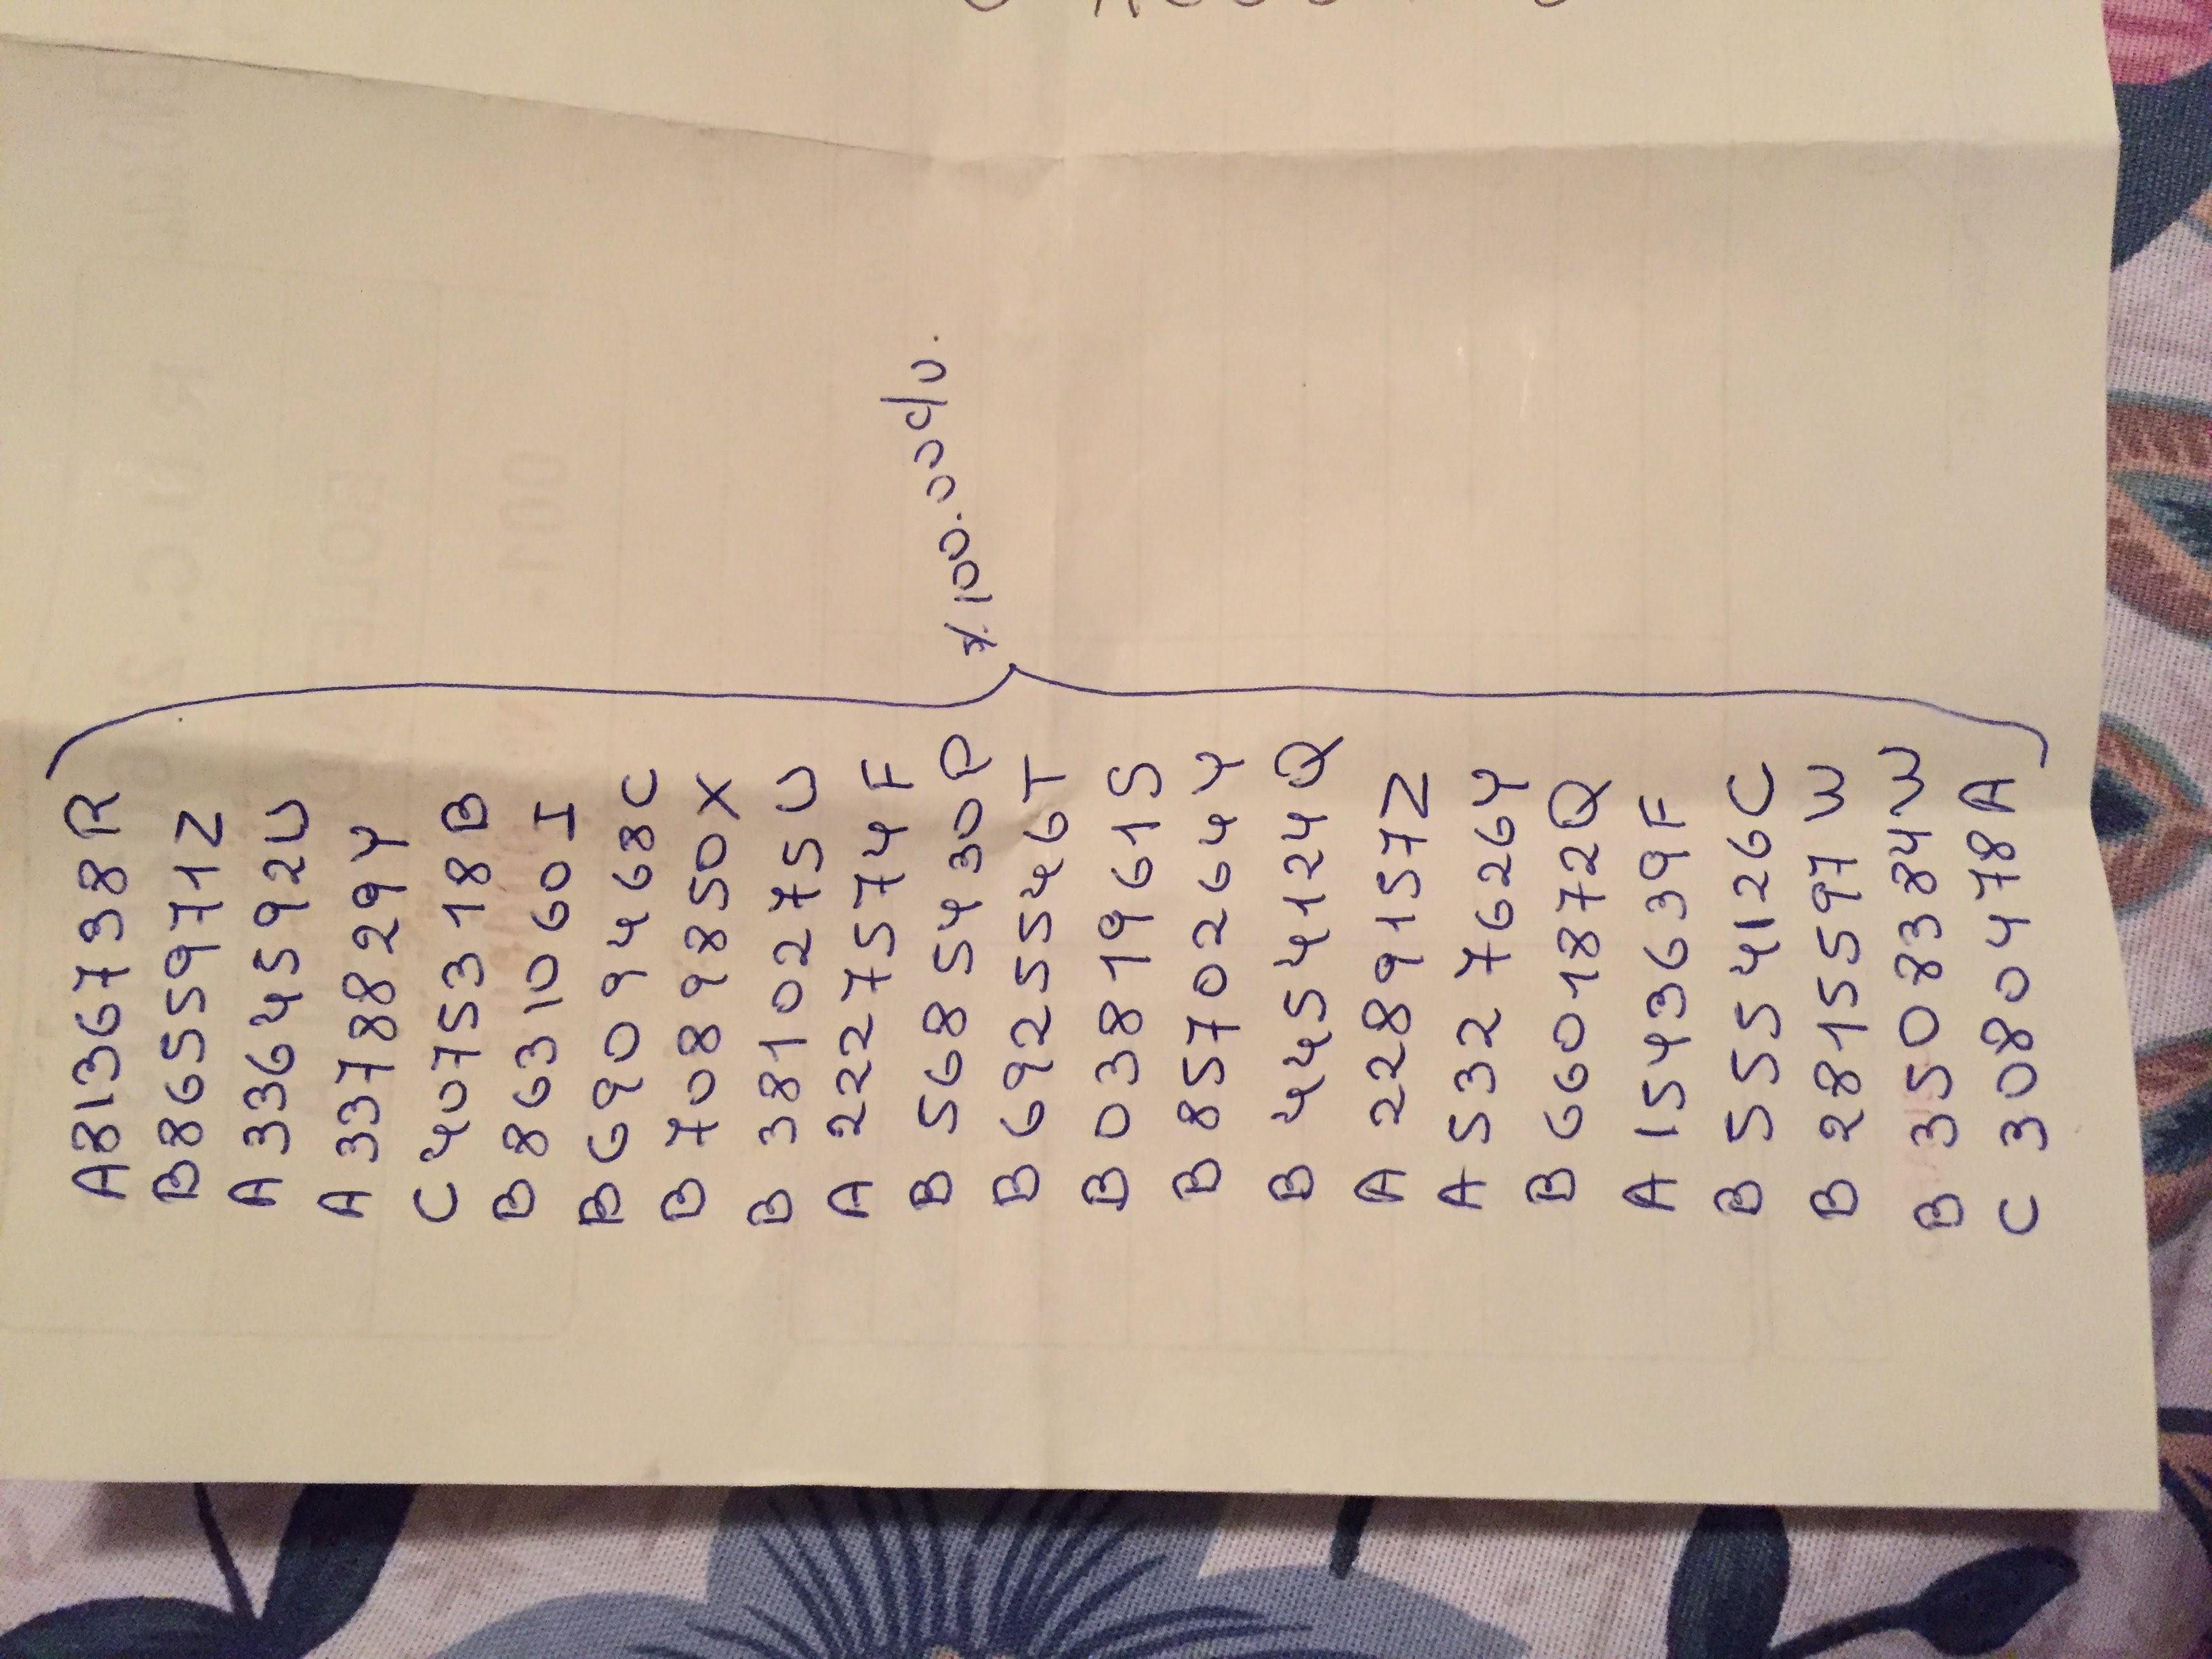 A8136738R
B8655971Z
A3364592U
A3378829Y
C4075318B
B8631060I
B6909468C
B7089850X
B3810275U
A2275574F
B5685430P
B6925546T
B0381961S
B8570264Y
B4454124Q
A2289157Z
A5327626Y
B6601872Q
A1543639F
B5554126C
B2815597W
B3508384W
C3080478A
100.00 c/u.